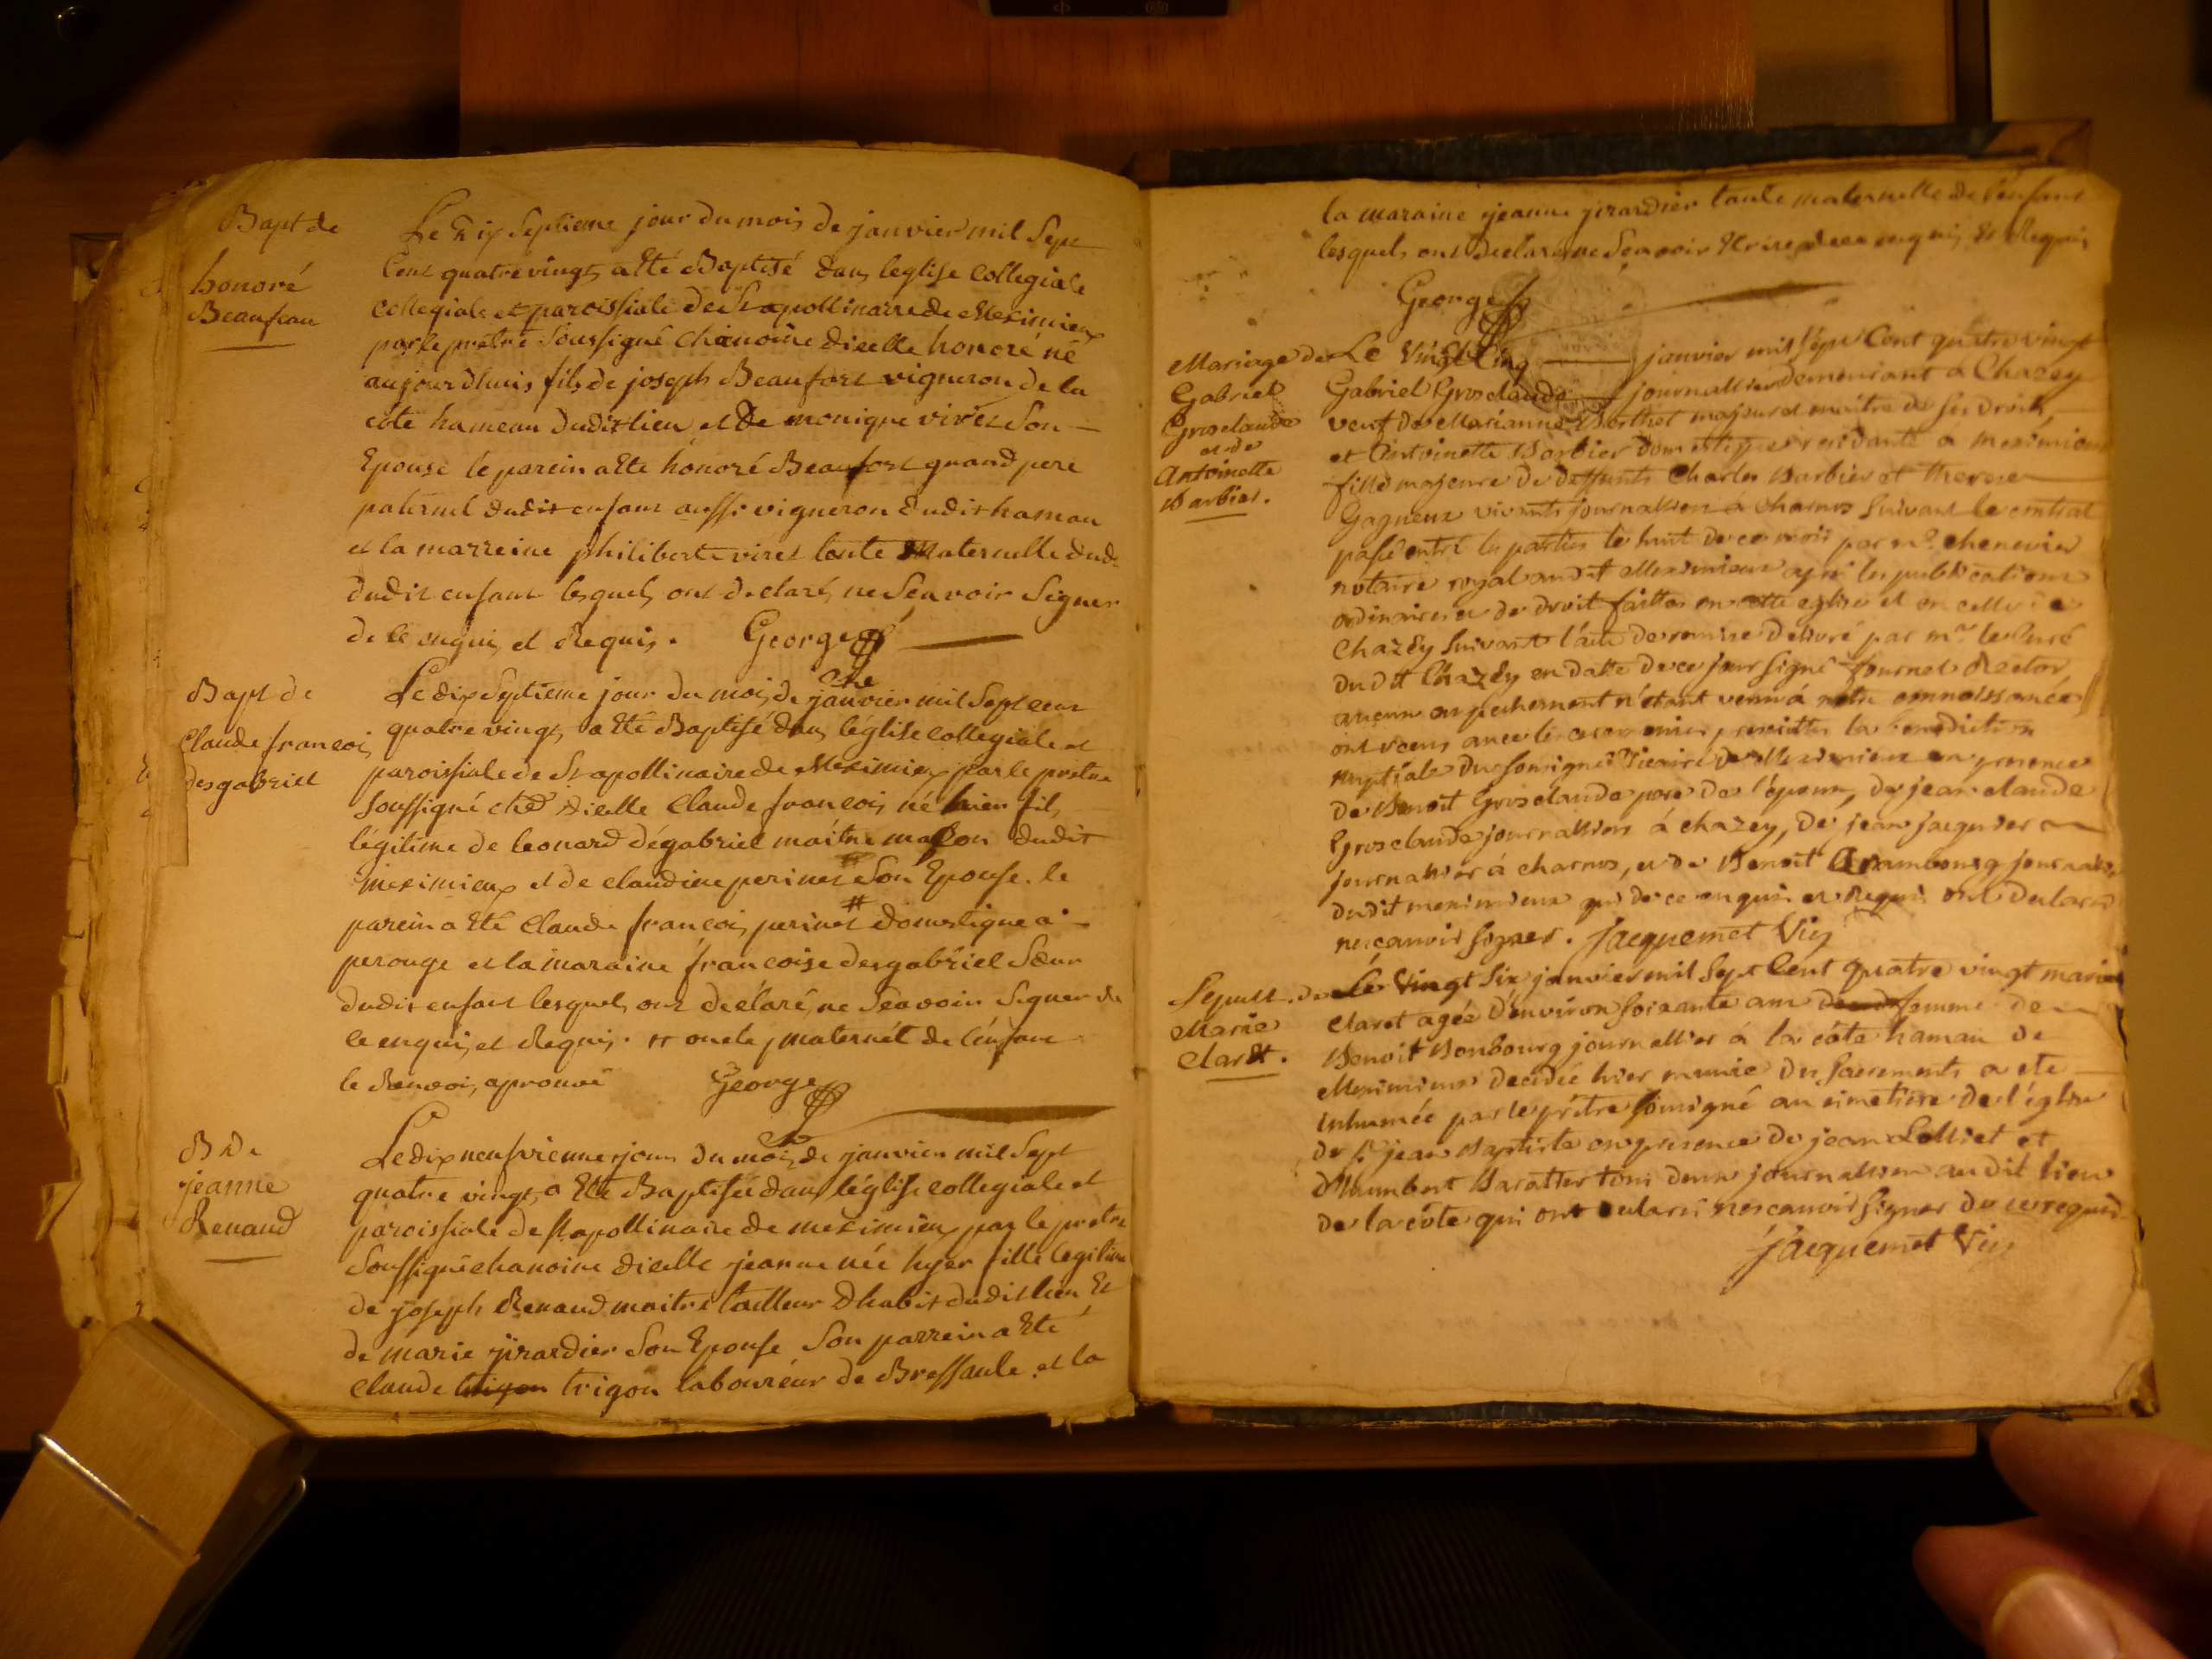 Bapt de
honoré
Beaufeau
Le dix septieme jour du mois de janvier mil sept
Cent quatre vingt, a Eté Baptisé dans leglise Collegiale
collegiale et paroissiale de St apollinaire de Meximieux
par le pretre soussigné Chanoine dicelle honoré né
aujourdhuis fils de joseph Beaufort vigneron de la
côte hameau dudit lieu et de monique viret Son
Epouse le parein a Eté honoré Beaufort grand pere
paternel dudit enfant aussi vigneron dudit hamau
et la marreine philiberte viret tante Maternelle dud
dudit enfant lesquels ont declaré ne Scavoir Signer
de ce enquis et Requis. George
Bapt de
Claude francois
desgabriel
Le dix septieme jour du mois de janvier mil Sept cent
quatre vingt, a Eté Baptisé dans léglise collegiale et
paroissiale de St apollinaire de Meximieux par le pretre
Soussigné chne dicelle Claude francois né hier fils
légitime de leonard dégabriel maitre masson dudit
meximieux et de claudine perinet Son Epouse. le
parein a Eté Claude francois perinet # domestique a
perouge et la maraine francoise desgabriel Sœur
dudit enfant lesquels ont déclaré ne Scavoir Signer de
ce enquis et Requis. # oncle maternel de lénfant
le Renvoi aprouvé George
B de
jeanne
Renaud
Le dix neufvieme jour du mois de janvier mil Sept
quatre vingt, a Eté Baptisée dans léglise collegiale et
paroissiale de St apollinaire de meximieux par le pretre
Soussigné chanoine dicelle jeanne née hyer fille legitime
de joseph Renaud maitre tailleur dhabit dudit lieu Et
de marie jirardier Son Epouse Son parrein a Eté
Claude trigon trigon laboureur de Bressaule et la
la maraine jeanne jirardier tante maternelle de lénfant
lesquels ont declaré ne Scavoir Ecrire de ce enquis Et Requis
George
Mariage de
Gabriel
Grosclaude
et de
Antoinette
Barbier.
Le Vingt Cinq janvier mil sept Cent quatre vingt
Gabriel Grosclaude journallier demeurant a Chazey
veuf de Marianne Berthet majeur et maitre de ses droits,
et Antoinette Barbier domestique residante à meximieux
fille majeure de deffunts Charles Barbier et therese
Gagneux vivants journalliers à Charnos suivant le contrat
passé entre les parties le huit de ce mois par me. chenevier
notaire royal audit Meximieux après les publications
ordinaires et de droit faittes en cette eglise et en celle de
Chazey suivant l'acte de remise delivré par mr le Curé
dudit Chazey en datte de ce jour signé fournet Rector
aucun empechement n'étant venu à notre connoissance
ont recus avec les ceremonies prescrittes la benediction
nuptiale du soussigné Vicaire de Meximieux en presence
de Benoit Grosclaude pere de l'époux, de jean claude
Grosclaude journallier à chazey, de jean jaquier
journallier à charnos, et de Benoit Arambourg journallier
dudit meximieux qui de ce enquis et Requis ont declaré
ne scavoir signer. Jacquemet Vic
Sepult. de
Marie
Claret.
Le Vingt Six janvier mil Sept Cent quatre vingt marie
Claret agée d'environ soixante ans femme de
Benoit Bonbourg journallier à la côte hamau de
Meximieux decedée hier munie des sacrements a ete
inhumée par le prêtre soussigné au cimetiere de l'église
de St jean Baptiste en presence de jean Lolliet et
d'humbert Baratter tous deux journalliers audit lieu
de la côte qui ont declaré ne scavoir signer de ce requis
Jacquemet Vic